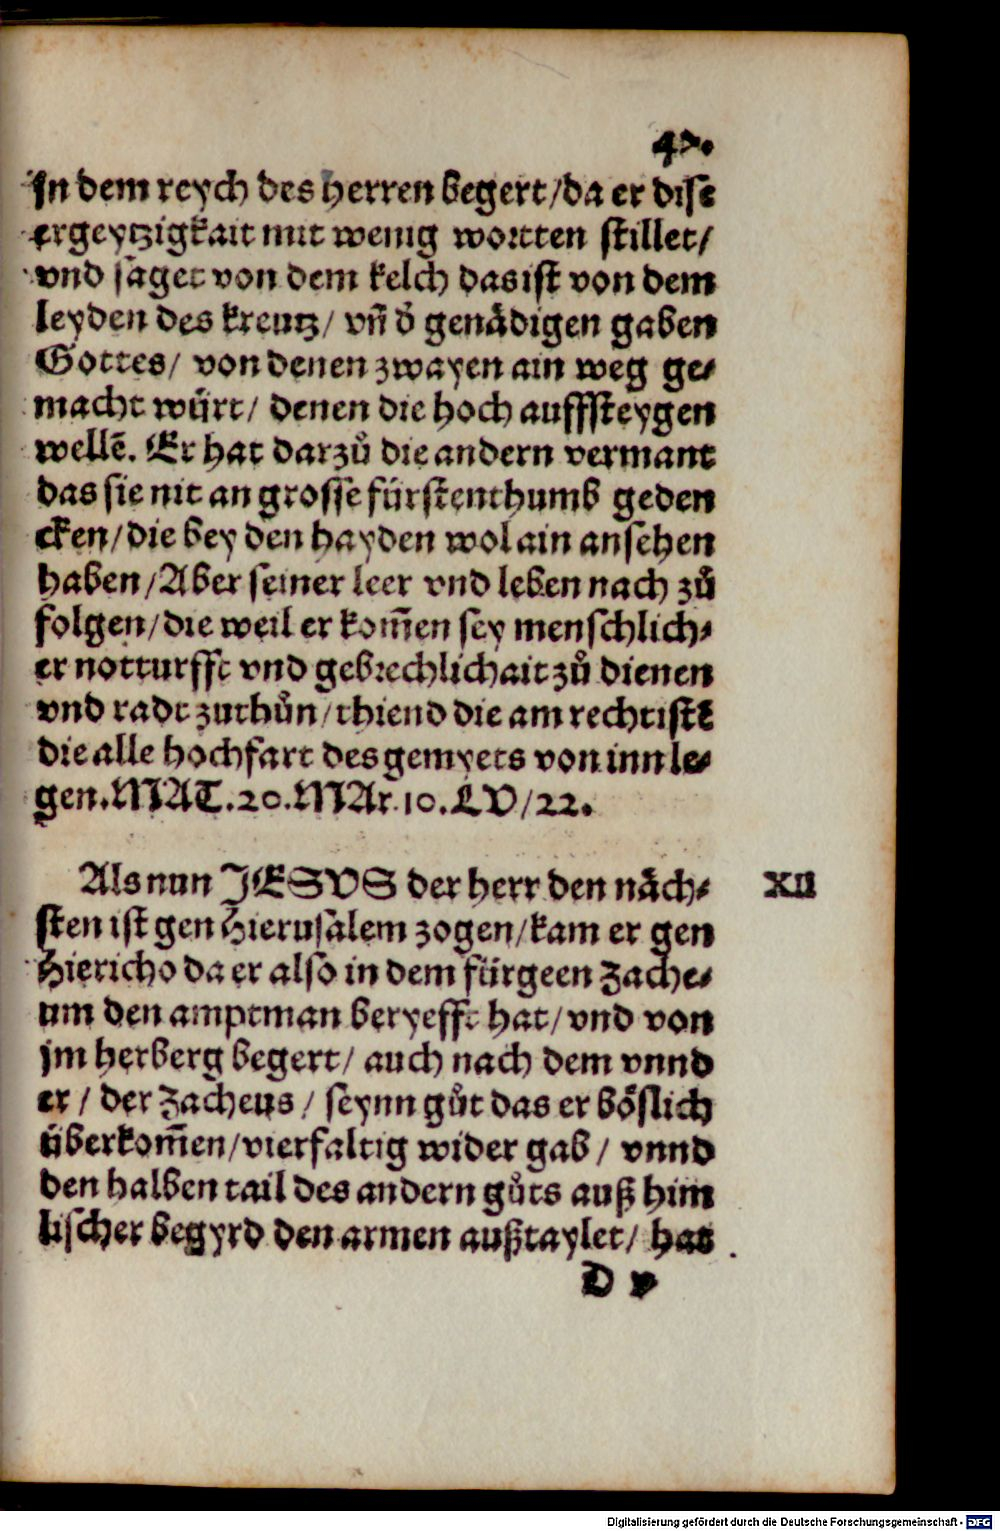 47.
Jn dem reych des herren begert/da er dise
ergeytzigkait mit wenig wortten stillet/
vnd saget von dem kelch das ist von dem
leyden des kreutz/ vn̄ d᷑ genådigen gaben
Gottes/ von denen zwayen ain weg ge⸗
macht würt/ denen die hoch auffsteygen
wellē. Er hat darzů die andern vermant
das sie nit an grosse fürstenthumb geden
cken/die bey den hayden wol ain ansehen
haben/Aber seiner leer vnd leben nach zů
folgen/die weil er kom̄en sey menschlich⸗
er notturfft vnd gebrechlichait zů dienen
vnd radt zuthůn/thiend die am rechtistē
die alle hochfart des gemyets von inn le⸗
gen.MAT.20.MAr.10.LV/22.
Als nun JESVS der herr den näch⸗
sten ist gen Hierusalem zogen/kam er gen
Hiericho da er also in dem fürgeen Zache⸗
um den amptman beryefft hat/vnd von
jm herberg begert/ auch nach dem vnnd
er/ der Zacheus/ seynn gůt das er bößlich
überkom̄en/vierfaltig wider gab/ vnnd
den halben tail des andern gůts auß him
lischer begyrd den armen außtaylet/ hat
D v
XII
Digitalisierung gefördert durch die Deutsche Forschungsgemeinschaft - DFG